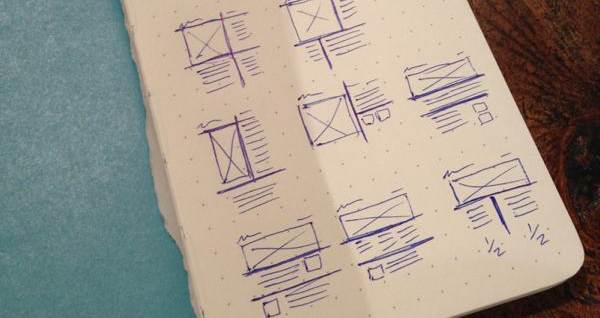 1/2 1/2